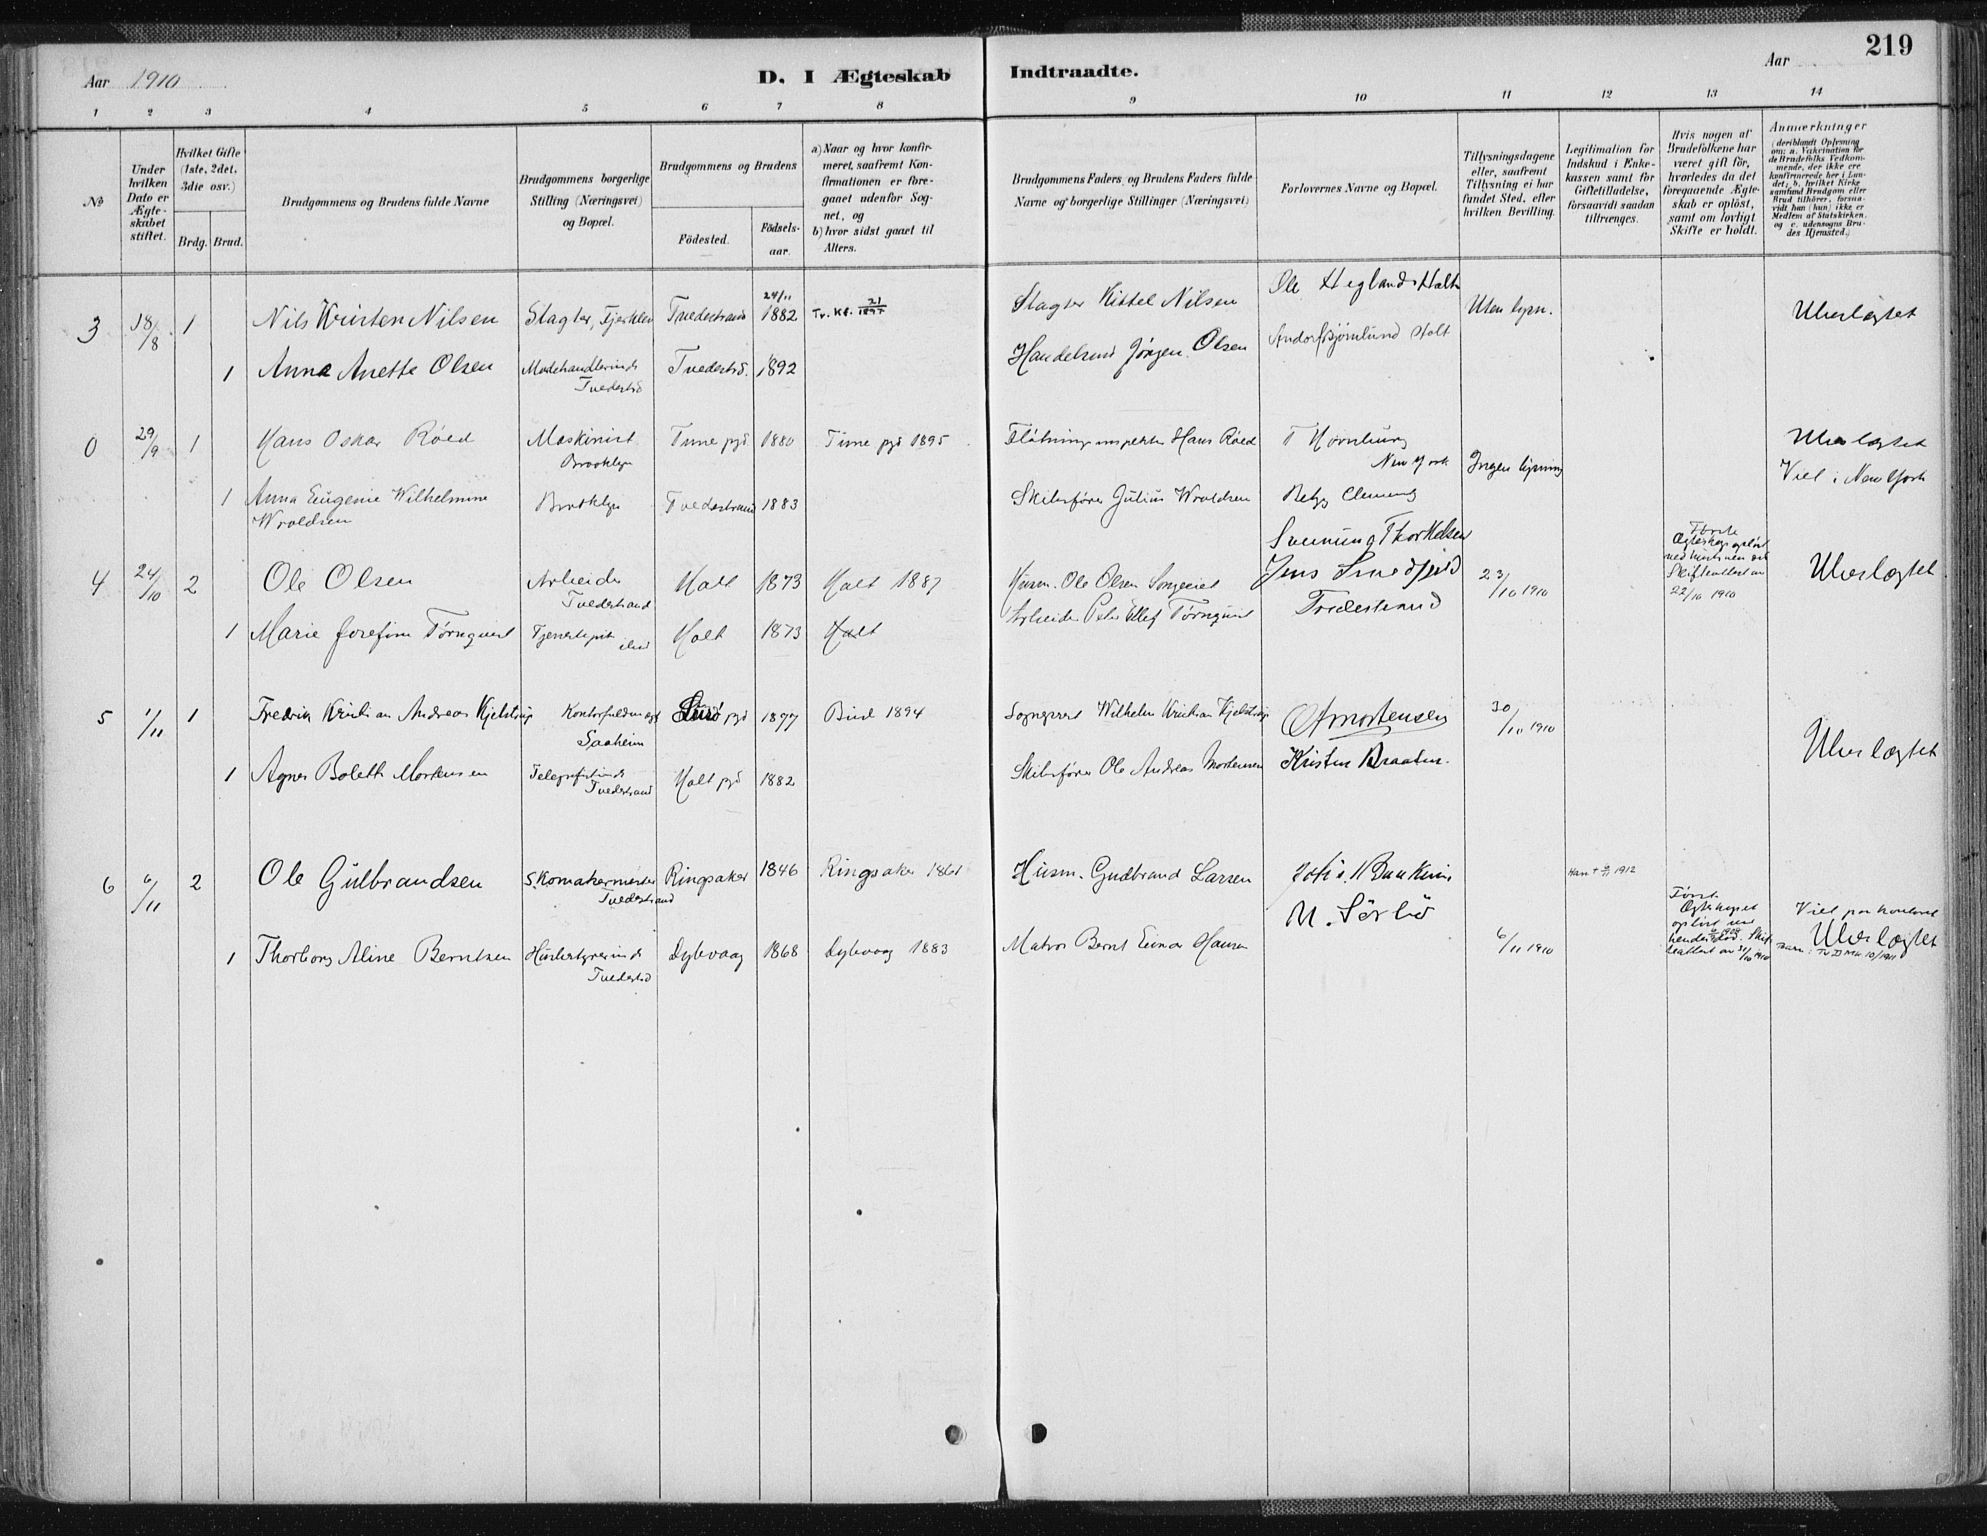 219
Aar 1910
D. I Ægteskab Indtraadte.
Aar
1 2 3 4 5 6 7 8 9 10 11 12 13 14
№
Under hvilken Dato er Ægteskabet stiftet.
Hvilket Gifte (1ste, 2det, 3die osv.)
Brdg. Brud.
Brudgommens og Brudens fulde Navne
Brudgommens borgerlige Stilling (Næringsvei) og Bopæl.
Brudgommens og Brudens
Födested.
Födselsaar.
a) Naar og hvor konfirmeret, saafremt Konfirmationen er foregaaet udenfor Sognet, og
b) hvor sidst gaaet til Alters.
Brudgommens Faders og Brudens Faders fulde Navne og borgerlige Stillinger (Næringsvei)
Forlovernes Navne og Bopæl.
Tillysningsdagene eller, saafremt Tillysning ei har fundet Sted, efter hvilken Bevilling.
Legitimation for Indskud i Enkekassen samt for Giftetilladelse, forsaavidt saadan tiltrænges.
Hvis nogen af Brudefolkene har været gift för, hvorledes da det foregaaende Ægteskab er oplöst, samt om lovligt Skifte er holdt.
Anmærkninger (deriblandt Oplysning om: a. Vakcination for de Brudefolks Vedkommende, der ikke ere konfirmerede her i Landet; b. hvilket Kirkesamfund Brudgom eller Brud tilhörer, forsaavidt han (hun) ikke er Medlem af Statskirken, og c. udensogns Brudes Hjemsted.)
3 18/8 1 Nils Kristen Nilsen Slagter, Fjerklev Tvedestrand 24/11 1882 Tv. Kf. 21/1897 Slagter Kittel Nilsen Ole Hegland, Holt Uten lysn. Uberlegtet
1 Anna Anette Olsen Modehandlerinde Tvedestrd Tvedestrd. 1892 Handelsmd Jørgen Olsen Holt
0 29/9 1 Hans Oskar Røed Maskinist Brooklyn Tune pgd 1880 Tune pgd 1895 Fløtningsinspektør Hans Røed T Hornburg New York Ingen lysning Viet i New York
1 Anna Eugenie Wilhelmine Wroldsen Brooklyn Tvedestrand 1883 Skibsfører Julius Wroldsen Betzy Clemens
4 24/10 2 Ole Olsen Arbeider Tvedestrand Holt 1873 Holt 1887 Husm. Ole Olsen Songeeiet Svenung Thorkelsen Jens Smedsfjeld Tvedestrand 23/10 1910 Første Ægteskap opløst ved hustruens død Skifteattest av 22/10 1910
1 Marie Josefine Tørnquist Tjenestepike ibid Holt 1873 Holt Arbeider Peter Ellef Tørnquist
5 1/11 1 Fredrik Kristian Andreas Kjelstrup Kontorfuldmægt Saaheim Lurö pgd 1877 Bud 1894 Sogneprest Wilhelm Kristian Kjelstrup O A Mortensen 30/10 1910
1 Agnes Bolette Mortensen Telegrafistinde Tvedestrand Holt pgd 1882 Skibsfører Ole Andreas Mortensen Kristen Braaten.
6 6/11 2 Ole Gulbrandsen Skomakermester Tvedestrand Ringsaker 1846 Ringsaker 1861 Husm. Gudbrand Larsen M. Sørbø Han + 9/11 1912 Første Ægteskapet opløst ved hendes død. Skifteattest av 31/10 1910 Viet paa kontoret
1 Thorborg Aline Berntsen Husbestyrerinde Tvedestrd Dybvaag 1868 Dybvaag 1883 Matros Bernt Einar Hansen 6/11 1910